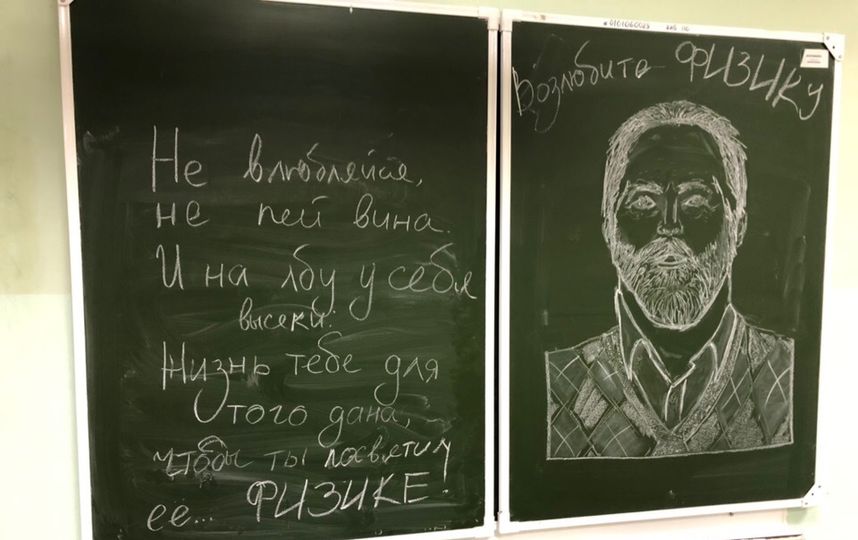 Не влюбляйся,
не пей вина.
И на лбу у себя
высеки:
Жизнь тебе для
того дана,
чтобы ты посвятил
её... ФИЗИКЕ!
Возлюбите ФИЗИКУ